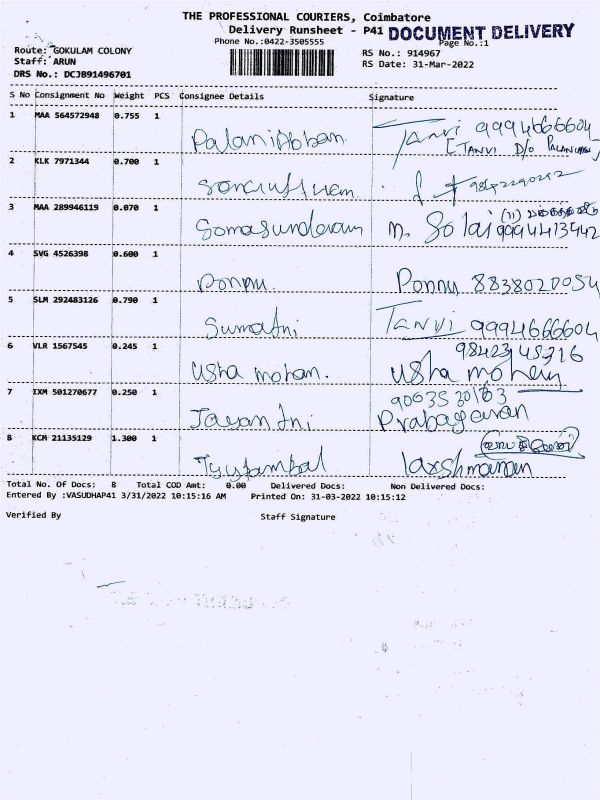 THE PROFESSIONAL COURIERS, Coimbatore
Delivery Runsheet - P41 DOCUMENT DELIVERY
Phone No.:0422-3505555 Page No.:1
Route: GOKULAM COLONY RS No.: 914967
Staff: ARUN RS Date: 31-Mar-2022
DRS No.: DCJ891496701
S No Consignment No Weight PCS Consignee Details Signature
1 MAA 564572948 0.755 1 Palaniappan Tanvi 9994666604
[TANVI D/o PALANIAPPAN]
2 KLK 7971344 0.700 1
3 MAA 289946119 0.070 1 Somasundaram M. Solai 9994413942
4 SVG 4526398 0.600 1 Ponnu. Ponnu 8838020054
5 SLM 292483126 0.790 1 Sumathi TANVI 9994666604
6 VLR 1567545 0.245 1 Usha mohan. 9842345716
Usha mohan
7 IXM 501270677 0.250 1 Jayanthi 9063520163
Prabageran
8 KCM 21135129 1.300 1 laxshmanan
Total No. Of Docs: 8 Total COD Amt: 0.00 Delivered Docs: Non Delivered Docs:
Entered By :VASUDHAP41 3/31/2022 10:15:16 AM Printed On: 31-03-2022 10:15:12
Verified By Staff Signature